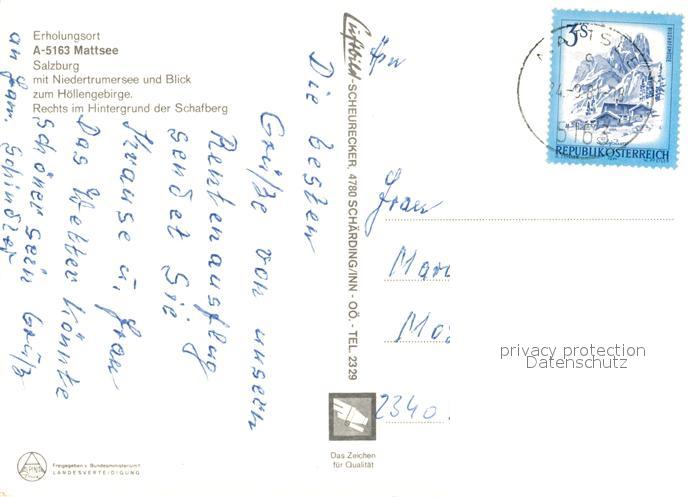 Erholungsort
A-5163 Mattsee
Salzburg
mit Niedertrumersee und Blick
zum Höllengebirge.
Rechts im Hintergrund der Schafberg
Die besten
Grüße von unsern
Rentenausflug
sendet Sie
Krause u. Frau
Das Wetter könnte
schöner sein Grüß
an Fam. Schindler
Luftbild-SCHEURECKER, 4780 SCHÄRDING/INN - OÖ. - TEL. 2329
3 S
REPUBLIK ÖSTERREICH
5163
Frau
2340
privacy protection
Datenschutz
Das Zeichen
für Qualität
ALPINE
Freigegeben v. Bundesministerium f.
LANDESVERTEIDIGUNG